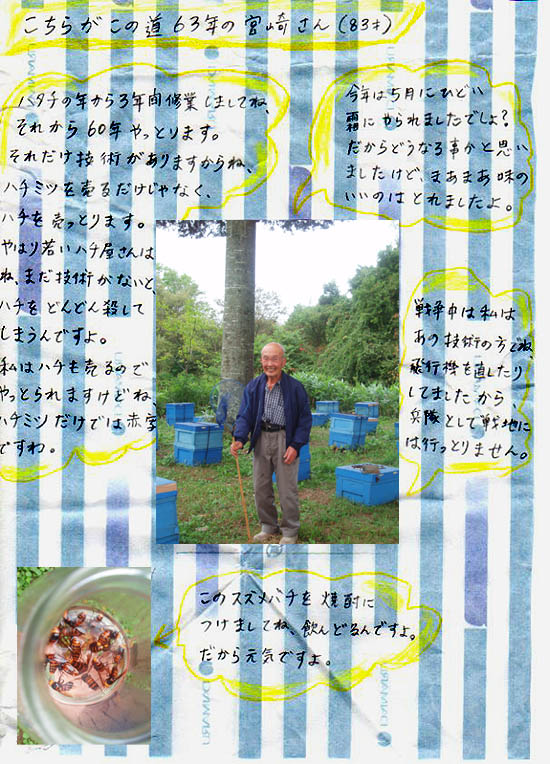 こちらがこの道63年の宮崎さん(83才)
ハタチの年から3年間修業しましてね、
それから60年やっとります。
それだけ技術がありますからね、
ハチミツを売るだけじゃなく、
ハチを売っとります。
やはり若いハチ屋さんは
ね、まだ技術がないと、
ハチをどんどん殺して
しまうんですよ。
私はハチも売るので
やっとられますけどね、
ハチミツだけでは赤字
ですわ。
今年は5月にひどい
霜にやられましたでしょ?
だからどうなる事かと思い
ましたけど、まあまあ味の
いいのはとれましたよ。
戦争中は私は
あの技術の方でね、
飛行機を直したり
してましたから、
兵隊として戦地に
は行っとりません。
このスズメバチを焼酎に
つけましてね、飲んどるんですよ。
だから元気ですよ。